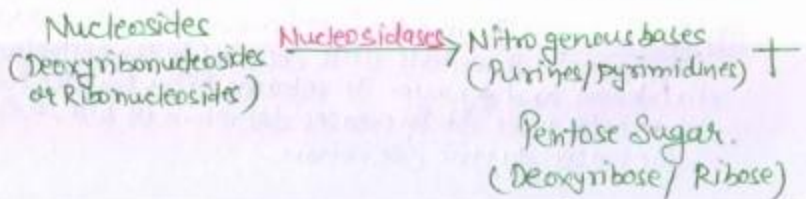 Nucleosides
(Deoxyribonucleosides
or Ribonucleosides)
Nucleosidases
Nitrogenous bases +
(Purines/pyrimidines)
Pentose Sugar.
(Deoxyribose/ Ribose)